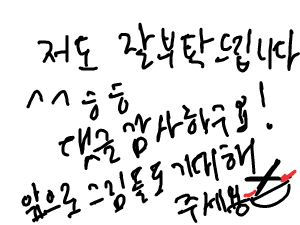 저도 잘부탁드립니다
^^ 층층
댓글 감사하구요!
앞으로 그림들도 기대해
주세용